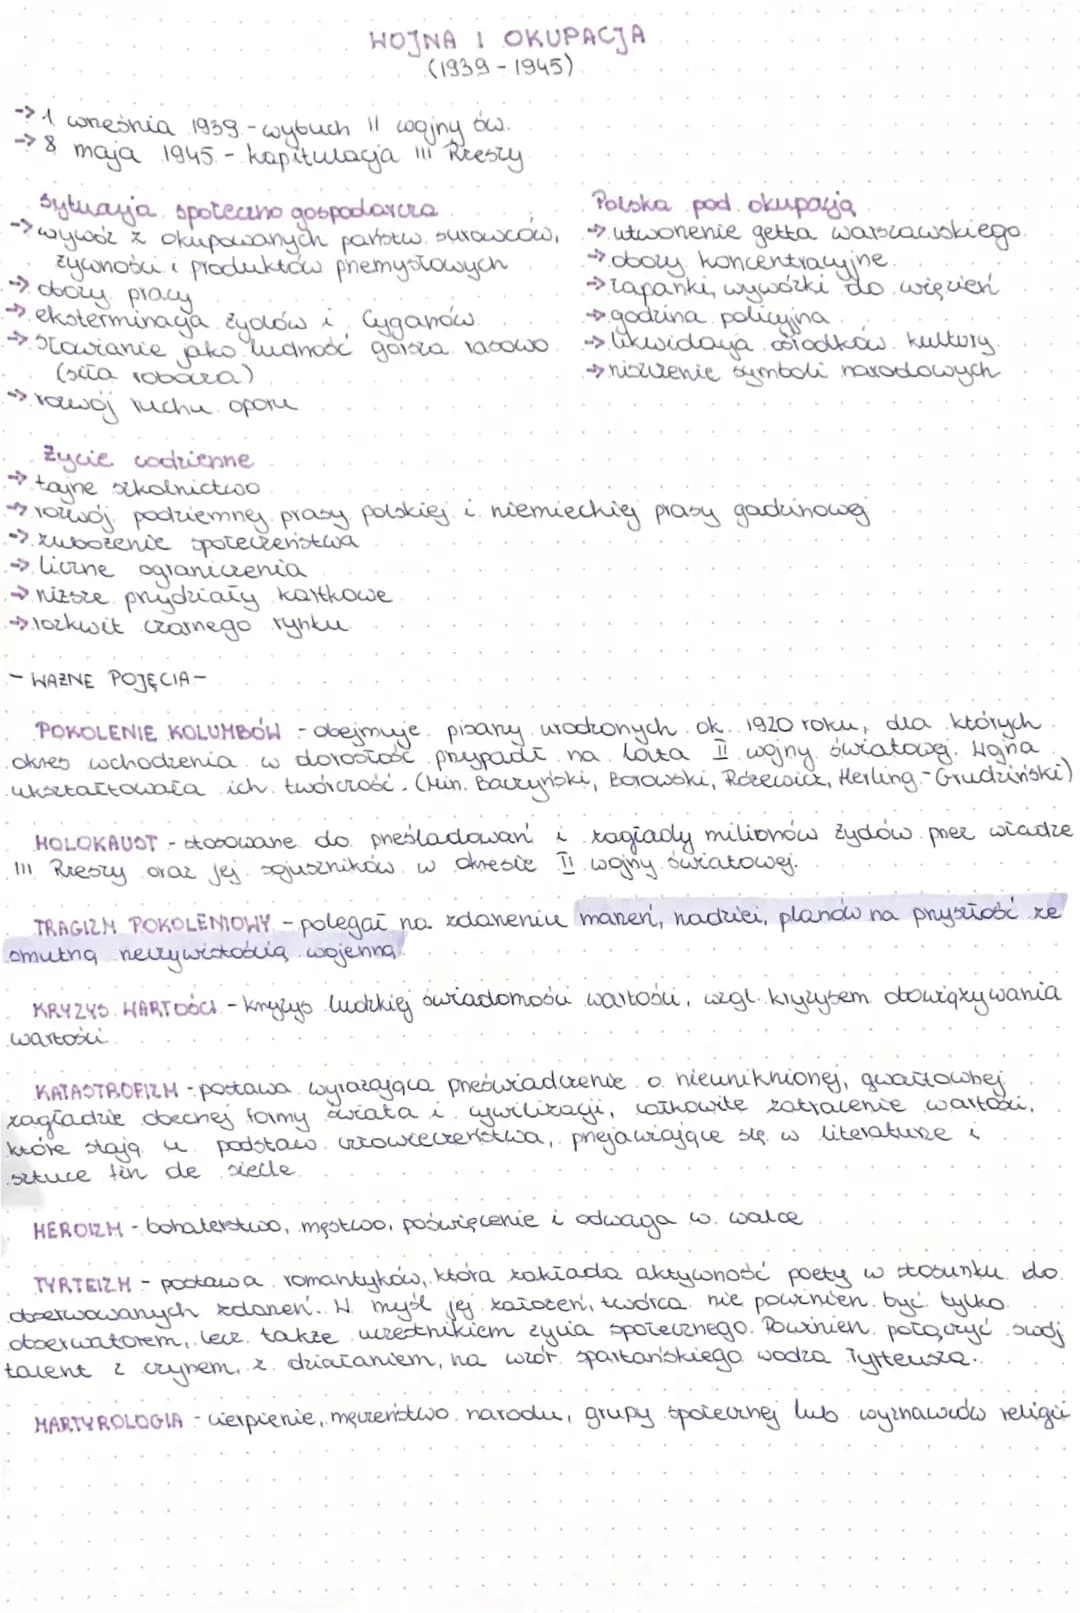 WOJNA I OKUPACJA
(1939 - 1945)
-> 1 września 1939 - wybuch II wojny św.
-> 8 maja 1945 - kapitulacja III Rzeszy
Sytuacja społeczno gospodarcza
-> wywóz z okupowanych państw surowców,
żywności i produktów przemysłowych
-> obozy pracy
-> eksterminacja Żydów i Cyganów
-> Słowianie jako ludność gorsza rasowo
(siła robocza)
-> rozwój ruchu oporu
Polska pod okupacją
-> utworzenie getta warszawskiego
-> obozy koncentracyjne
-> łapanki, wywózki do więzień
-> godzina policyjna
-> likwidacja ośrodków kultury
-> niszczenie symboli narodowych
Życie codzienne
-> tajne szkolnictwo
-> rozwój podziemnej prasy polskiej i niemieckiej prasy gadzinowej
-> zubożenie społeczeństwa
-> liczne ograniczenia
-> niższe przydziały kartkowe
-> rozkwit czarnego rynku
- WAŻNE POJĘCIA -
POKOLENIE KOLUMBÓW - obejmuje pisarzy urodzonych ok. 1920 roku, dla których
okres wchodzenia w dorosłość przypadł na lata II wojny światowej. Wojna
ukształtowała ich twórczość. (Min. Baczyński, Borowski, Różewicz, Herling-Grudziński)
HOLOKAUST - stosowane do prześladowań i zagłady milionów Żydów przez władze
III Rzeszy oraz jej sojuszników w okresie II wojny światowej.
TRAGIZM POKOLENIOWY - polegał na zdarzeniu marzeń, nadziei, planów na przyszłość ze
smutną rzeczywistością wojenną.
KRYZYS WARTOŚCI - kryzys ludzkiej świadomości wartości, wzgl. kryzysem obowiązywania
wartości
KATASTROFIZM - postawa wyrażająca przeświadczenie o nieuniknionej, gwałtownej
zagładzie obecnej formy świata i cywilizacji, całkowite zatracenie wartości,
które stają u podstaw człowieczeństwa, przejawiające się w literaturze i
sztuce fin de siecle.
HEROIZM - bohaterstwo, męstwo, poświęcenie i odwaga w walce
TYRTEIZM - postawa romantyków, która zakłada aktywność poety w stosunku do
obserwowanych zdarzeń. W myśl jej założeń, twórca nie powinien być tylko
obserwatorem, lecz także uczestnikiem życia społecznego. Powinien połączyć swój
talent z czynem, z działaniem, na wzór spartańskiego wodza Tyrteusza.
MARTYROLOGIA - cierpienie, męczeństwo narodu, grupy społecznej lub wyznawców religii